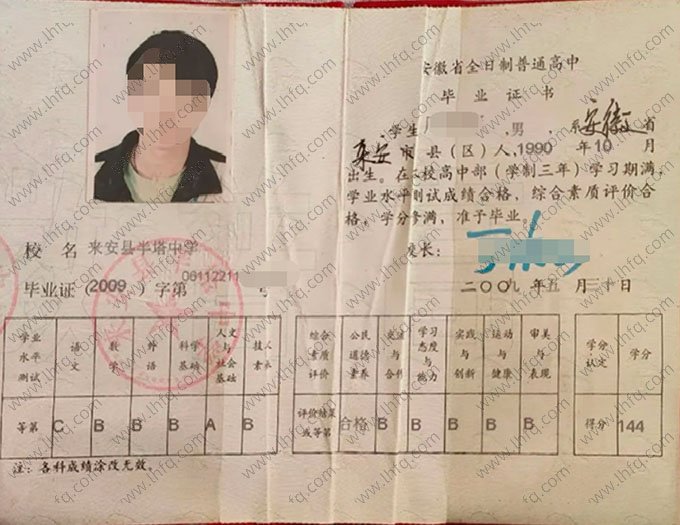 安徽省全日制普通高中
毕业证书
学生 ，男 ，系安徽省
来安市县（区）人，1990 年 10 月
出生。在本校高中部（学制三年）学习期满，
学业水平测试成绩合格，综合素质评价合
格，学分修满，准予毕业。
校长：
二〇〇九年五月三十日
校 名 来安县半塔中学
毕业证（2009）字第 06112211 号
学业水平测试 语文 数学 外语 科学基础 人文与社会基础 技术素养
等第 C B B B A B
综合素质评价 公民道德素养 交流与合作 学习态度与能力 实践与创新 运动与健康 审美与表现
评价结果或等第 合格 B B B B B
学分认定 学分
得分 144
注：各科成绩涂改无效。
www.lhfq.com